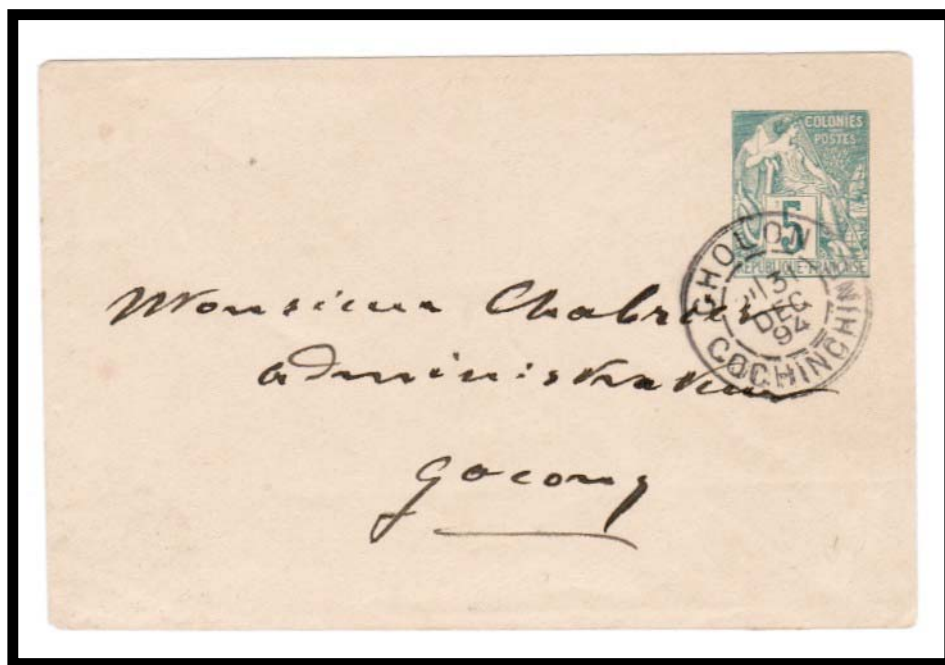 COLONIES
POSTES
5
REPUBLIQUE FRANCAISE
CHOLON
31
DEC
94
COCHINCHINE
Monsieur
administrateur
Gocong